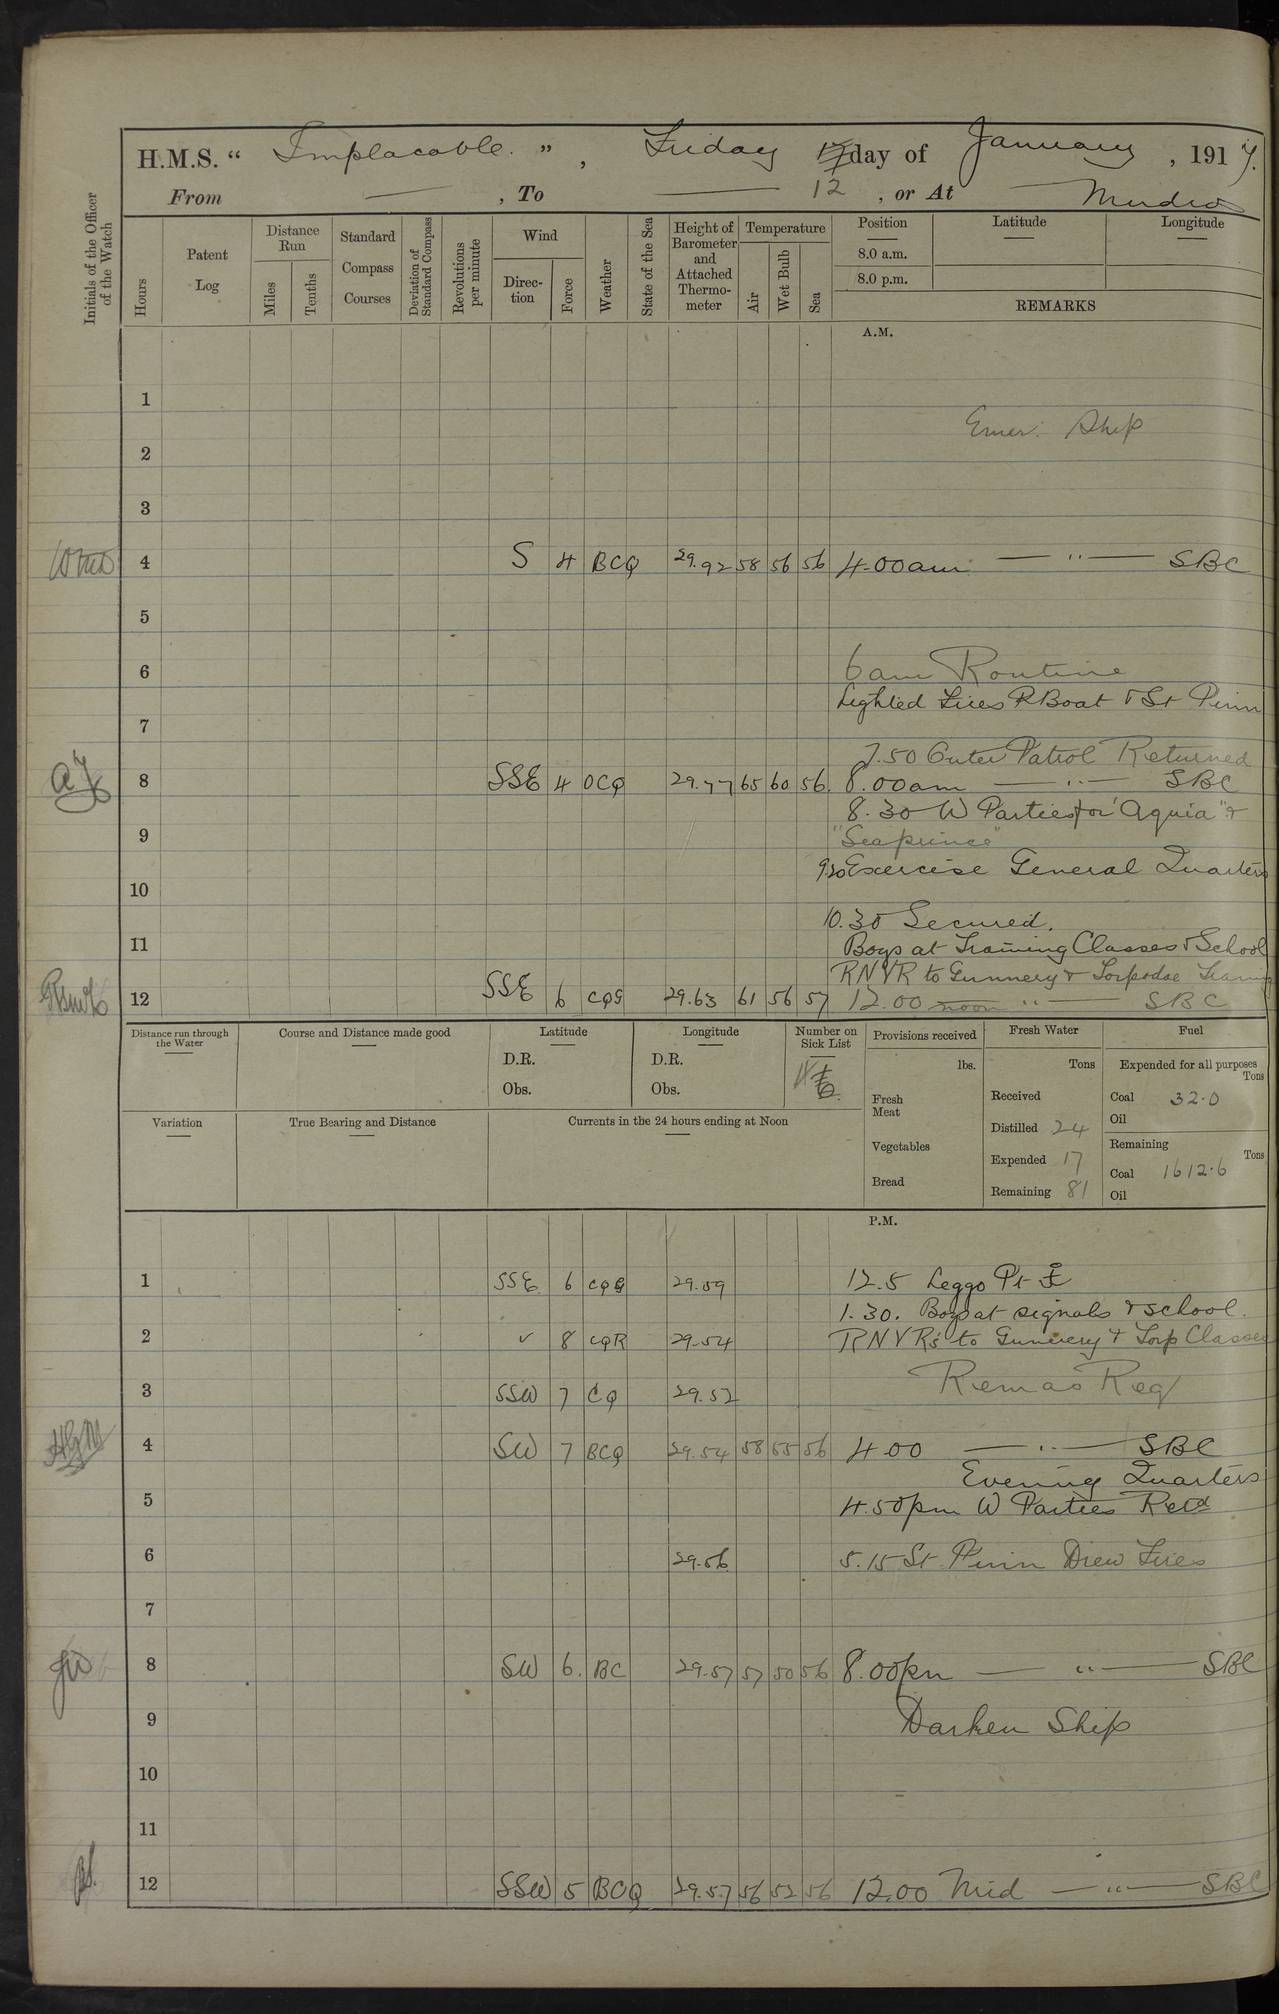 H.M.S. “ Implacable. ” , Friday day of January , 1917.
From — , To — 12 , or At Mudros
Initials of the Officer of the Watch
Hours
Patent Log
Distance Run
Miles
Tenths
Standard Compass Courses
Deviation of Standard Compass
Revolutions per minute
Wind
Direction
Force
Weather
State of the Sea
Height of Barometer and Attached Thermometer
Temperature
Air
Wet Bulb
Sea
Position
8.0 a.m.
8.0 p.m.
Latitude
Longitude
REMARKS
A.M.
1
Emer: Ship
2
3
4 S 4 BCQ 29.92 58 56 56 4.00am — " — SBC
5
6 6am Routine
Lighted Fires P Boat & St Pinn
7
7.50 Outer Patrol Returned
8 SSE 4 OCQ 29.77 65 60 56. 8.00am — " — SBC
8.30 W Parties for "Aquia" &
9 "Seaprince"
9.20 Exercise General Quarters
10
10.30 Secured.
11 Boys at Training Classes & School
RNVR to Gunnery & Torpedoe Training
12 SSE 6 CQG 29.63 61 56 57 12.00 noon " — SBC
Distance run through the Water
Course and Distance made good
Latitude
D.R.
Obs.
Longitude
D.R.
Obs.
Number on Sick List
Provisions received
lbs.
Fresh Meat
Vegetables
Bread
Fresh Water
Tons
Received
Distilled 24
Expended 17
Remaining 81
Fuel
Expended for all purposes
Tons
Coal 32.0
Oil
Remaining
Tons
Coal 1612.6
Oil
Variation
True Bearing and Distance
Currents in the 24 hours ending at Noon
P.M.
1 SSE 6 CQG 29.59 12.5 Leggo Pt
1.30. Boys at signals & school.
2 ✓ 8 CQR 29.54 RNVRs to Gunnery & Torp Classes
3 SSW 7 CQ 29.52 Rem as Req
4 SW 7 BCQ 29.54 58 55 56 4.00 — " — SBC
Evening Quarters
5 4.50pm W Parties Retd
6 29.56 5.15 St Pinn Drew Fires
7
8 SW 6. BC 29.57 57 50 56 8.00pm — " — SBC
9 Darken Ship
10
11
12 SSW 5 BCQ 29.57 56 52 56 12.00 Mid — " — SBC